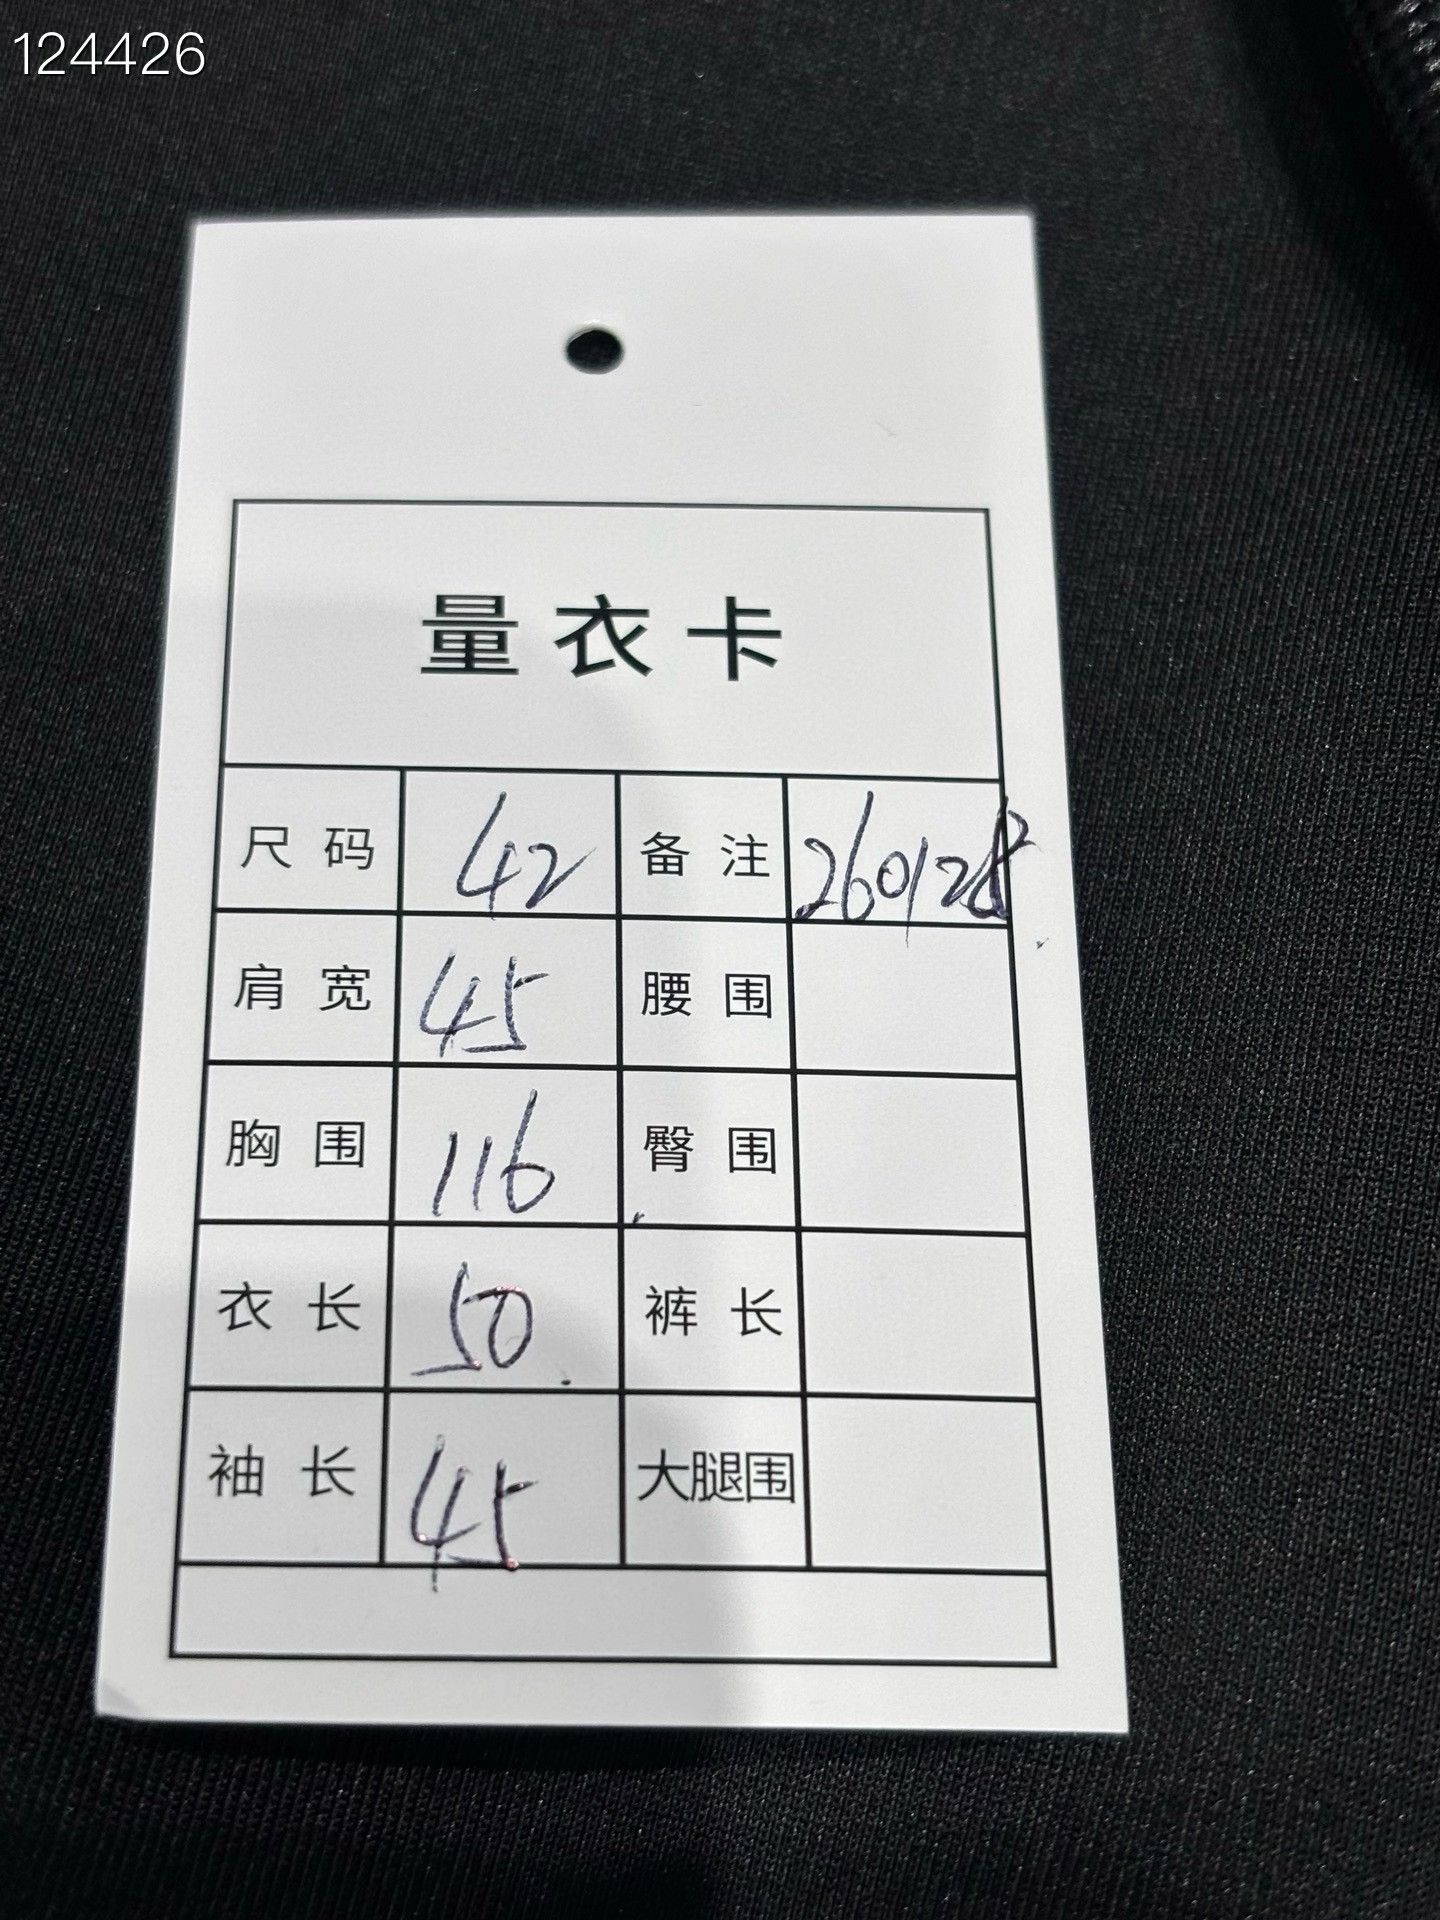 124426
量衣卡
尺码 42 备注 260128
肩宽 45 腰围
胸围 116 臀围
衣长 50 裤长
袖长 45 大腿围